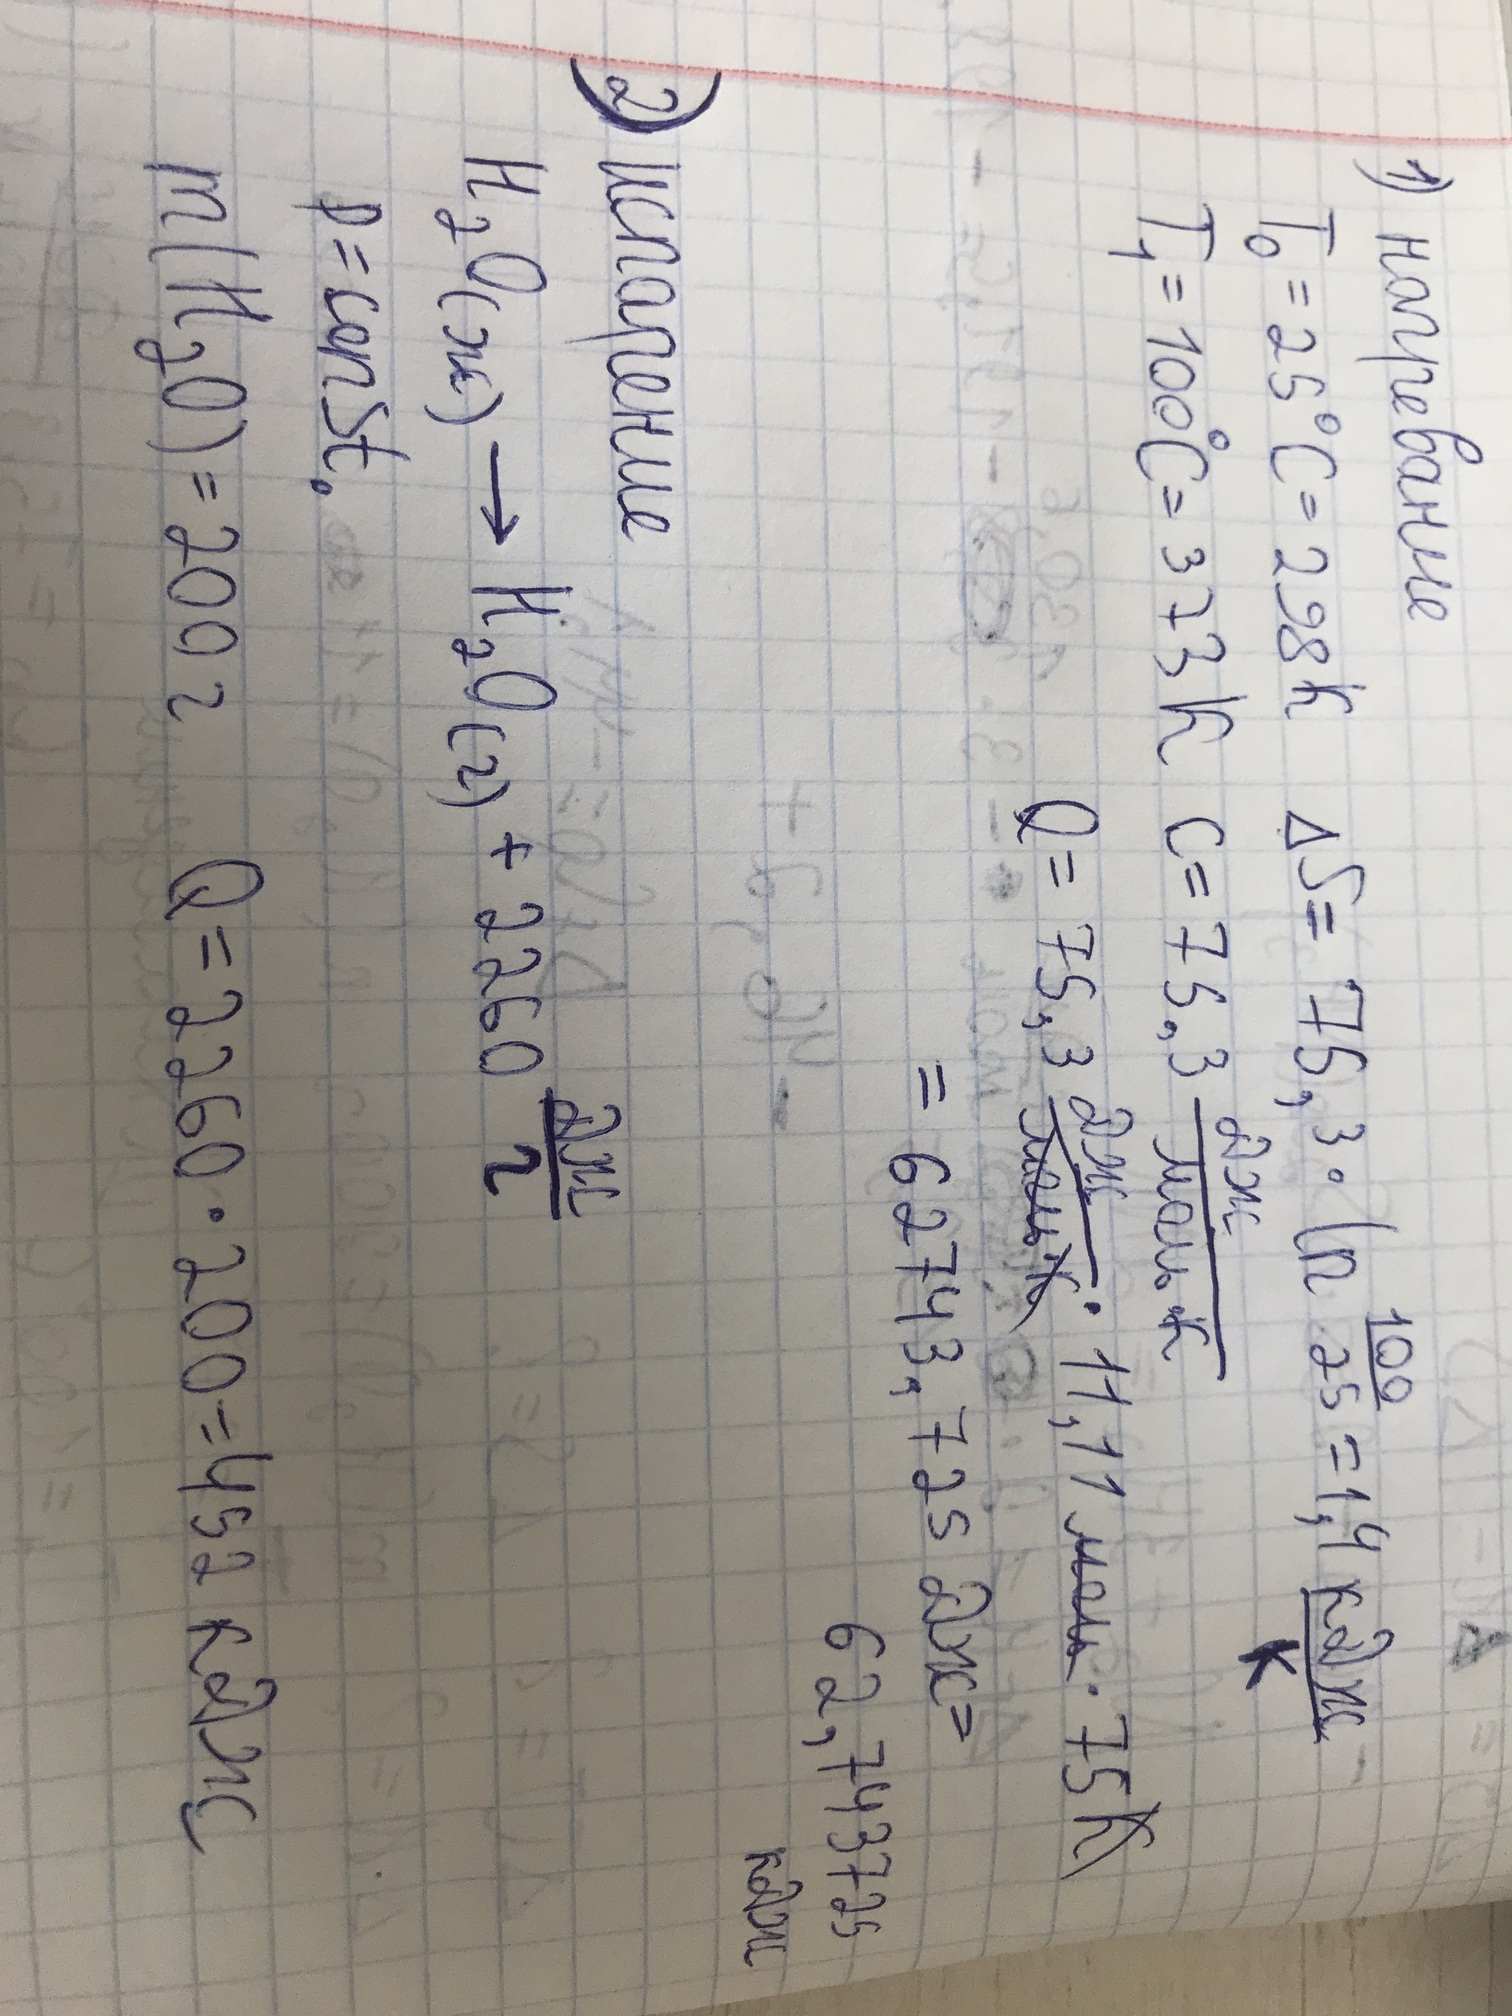 1) нагревание
T₀ = 25°C = 298К ΔS = 75,3 · ln 100/25 = 1,4 кДж/К
T₁ = 100°C = 373К C = 75,3 Дж/моль·К
Q = 75,3 Дж/моль·К · 11,11 моль · 75К
= 62743,725 Дж =
62,743725
кДж
2) испарение
H₂O(ж) → H₂O(г) + 2260 Дж/г
p = const.
m(H₂O) = 200 г Q = 2260 · 200 = 452 кДж